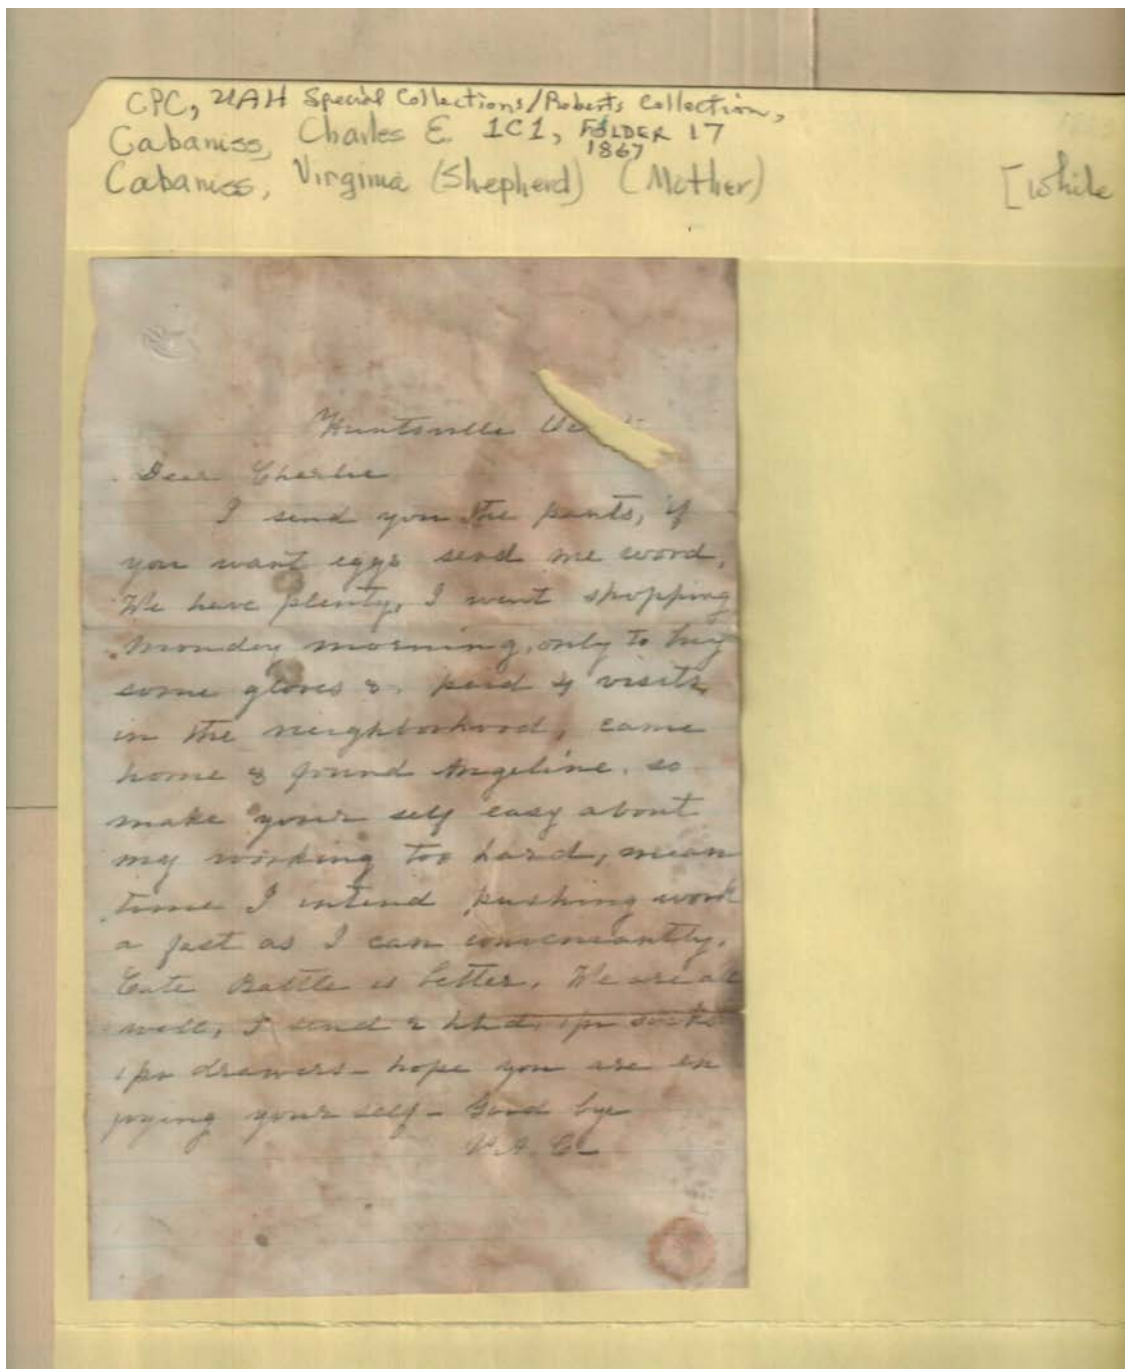 CPC, UAH Special Collections/Roberts Collection,
Cabaniss, Charles E. 1C1, FOLDER 17
1867
Cabaniss, Virginia (Shepherd) (Mother)
[while
Huntsville
Dear Charlie
I send you the pants, if
you want eggs send me word,
We have plenty, I went shopping
Monday morning, only to buy
some gloves & paid 4 visits
in the neighborhood, came
home & found Angeline. so
make your self easy about
my working too hard, mean
time I intend pushing work
a fast as I can conveniantly.
Cate Battle is better. We are al
well, I send 2 hkd. 1 pr socks
1 pr drawers - hope you are en
joying your self - Good bye
V. A. C.